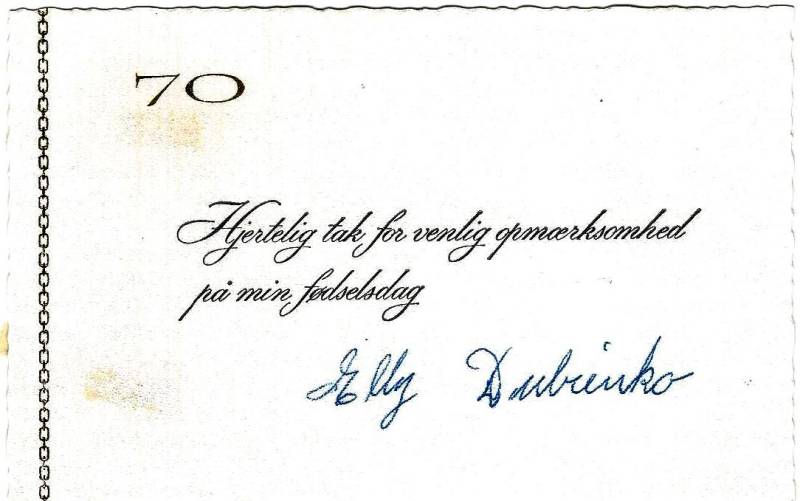 70
Hjertelig tak for venlig opmærksomhed
på min fødselsdag
Elly Dubienko